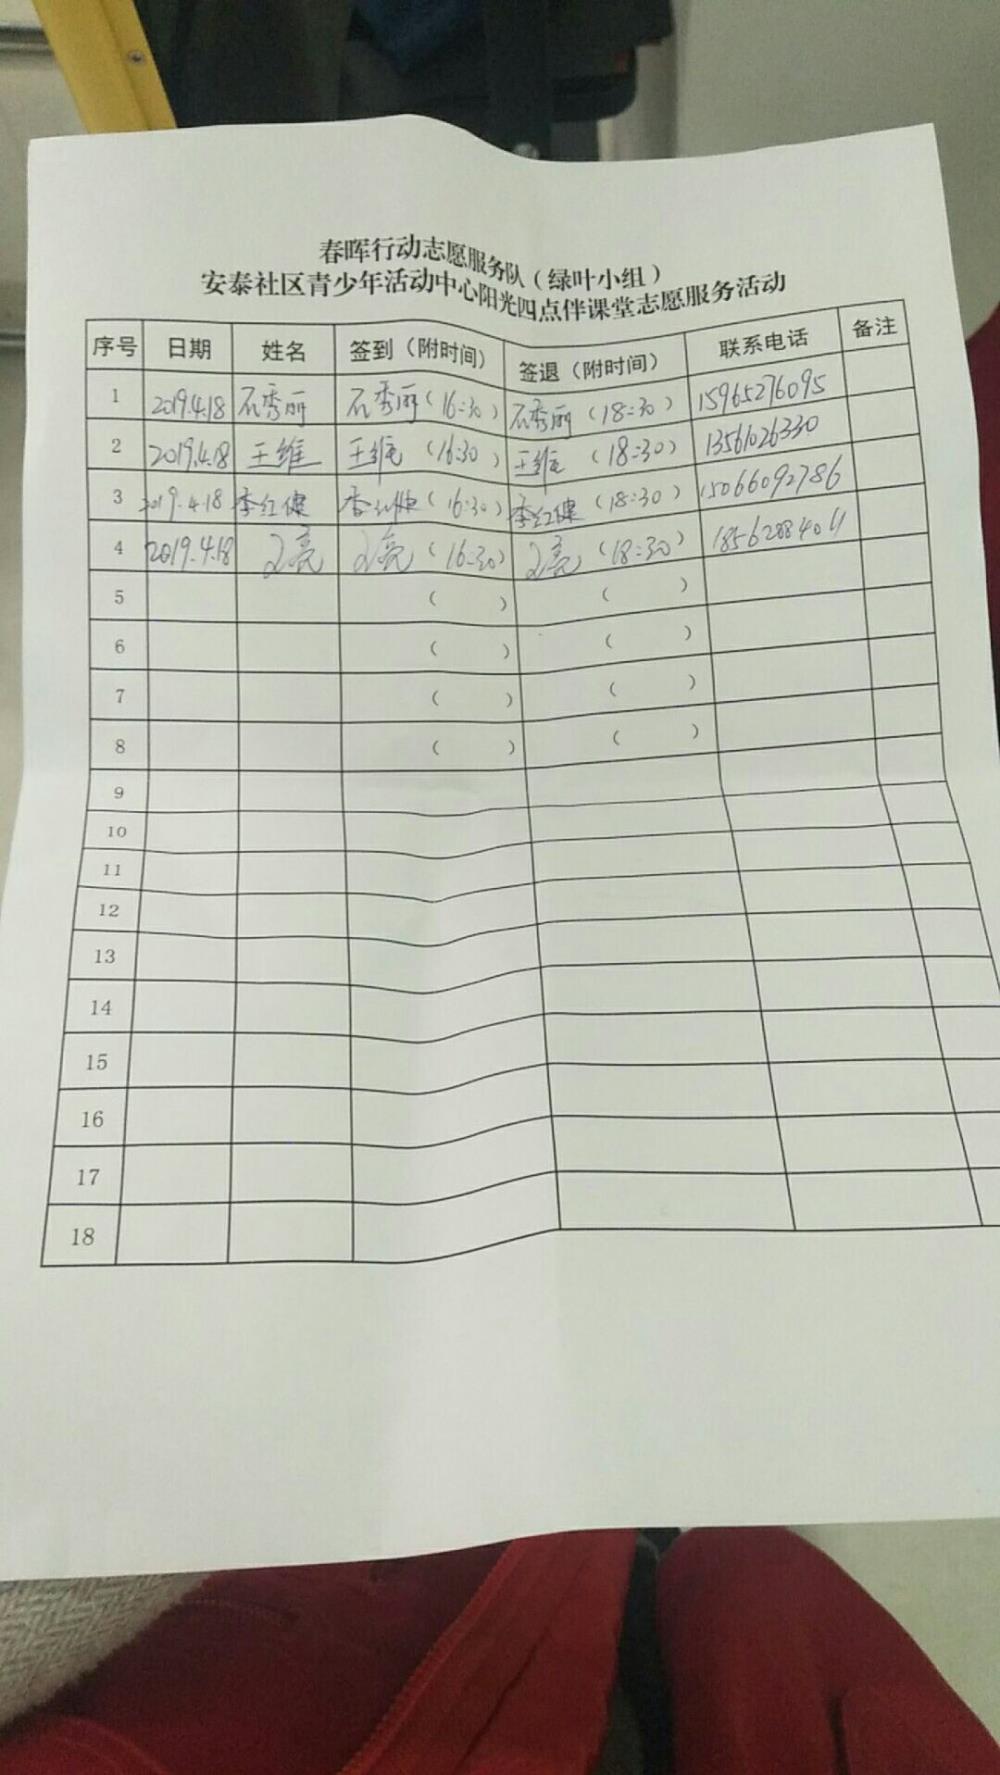 春晖行动志愿服务队（绿叶小组）
安泰社区青少年活动中心阳光四点伴课堂志愿服务活动
序号 日期 姓名 签到（附时间） 签退（附时间） 联系电话 备注
1 2019.4.18 石秀丽 石秀丽（16:30） 石秀丽（18:30） 15965276095
2 2019.4.18 王维 王维（16:30） 王维（18:30） 13561026330
3 2019.4.18 李红健 李红健（16:30） 李红健（18:30） 15066092786
4 2019.4.18 （16:30） （18:30）
5 （ ） （ ）
6 （ ） （ ）
7 （ ） （ ）
8 （ ） （ ）
9
10
11
12
13
14
15
16
17
18